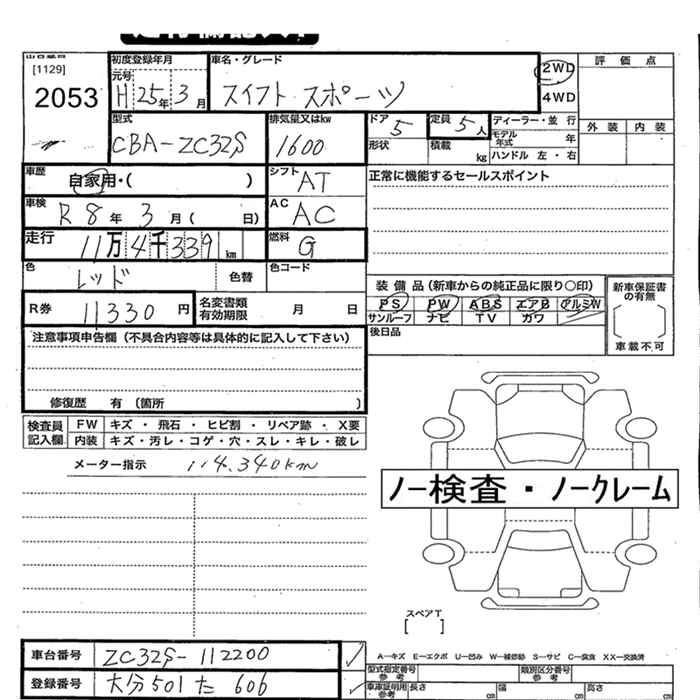 [1129]
2053
初度登録年月
元号
H 25年 3月
車名・グレード
スイフト スポーツ
2WD
4WD
評 価 点
外 装 内 装
型式
CBA-ZC32S
排気量又はkw
1600
ドア
5
定員
5人
ディーラー・並 行
モデル年式 年
形状
積載 kg
ハンドル 左・右
車歴
自家用・( )
シフト
AT
正常に機能するセールスポイント
車検
R 8 年 3 月 ( 日)
AC
AC
走行
11万4千339km
燃料
G
色
レッド
色替
色コード
R券
11330 円
名変書類有効期限 月 日
装 備 品 (新車からの純正品に限り○印)
PS PW ABS エアB アルミW
サンルーフ ナビ TV カワ
後日品
新車保証書の有無
車載不可
注意事項申告欄 (不具合内容等は具体的に記入して下さい)
修復歴 有 (箇所 )
検査員記入欄
FW キズ・飛石・ヒビ割・リペア跡・X要
内装 キズ・汚レ・コゲ・穴・スレ・キレ・破レ
メーター指示 114.340km
ノー検査・ノークレーム
スペアT
[ ]
A―キズ E―エクボ U―凹み W―補修跡 S―サビ C―腐食 XX―交換済
車台番号 ZC32S-112200
登録番号 大分501 た 606
型式指定番号参考
類別区分番号参考
車庫証明用参考 長さ cm 幅 cm 高さ cm